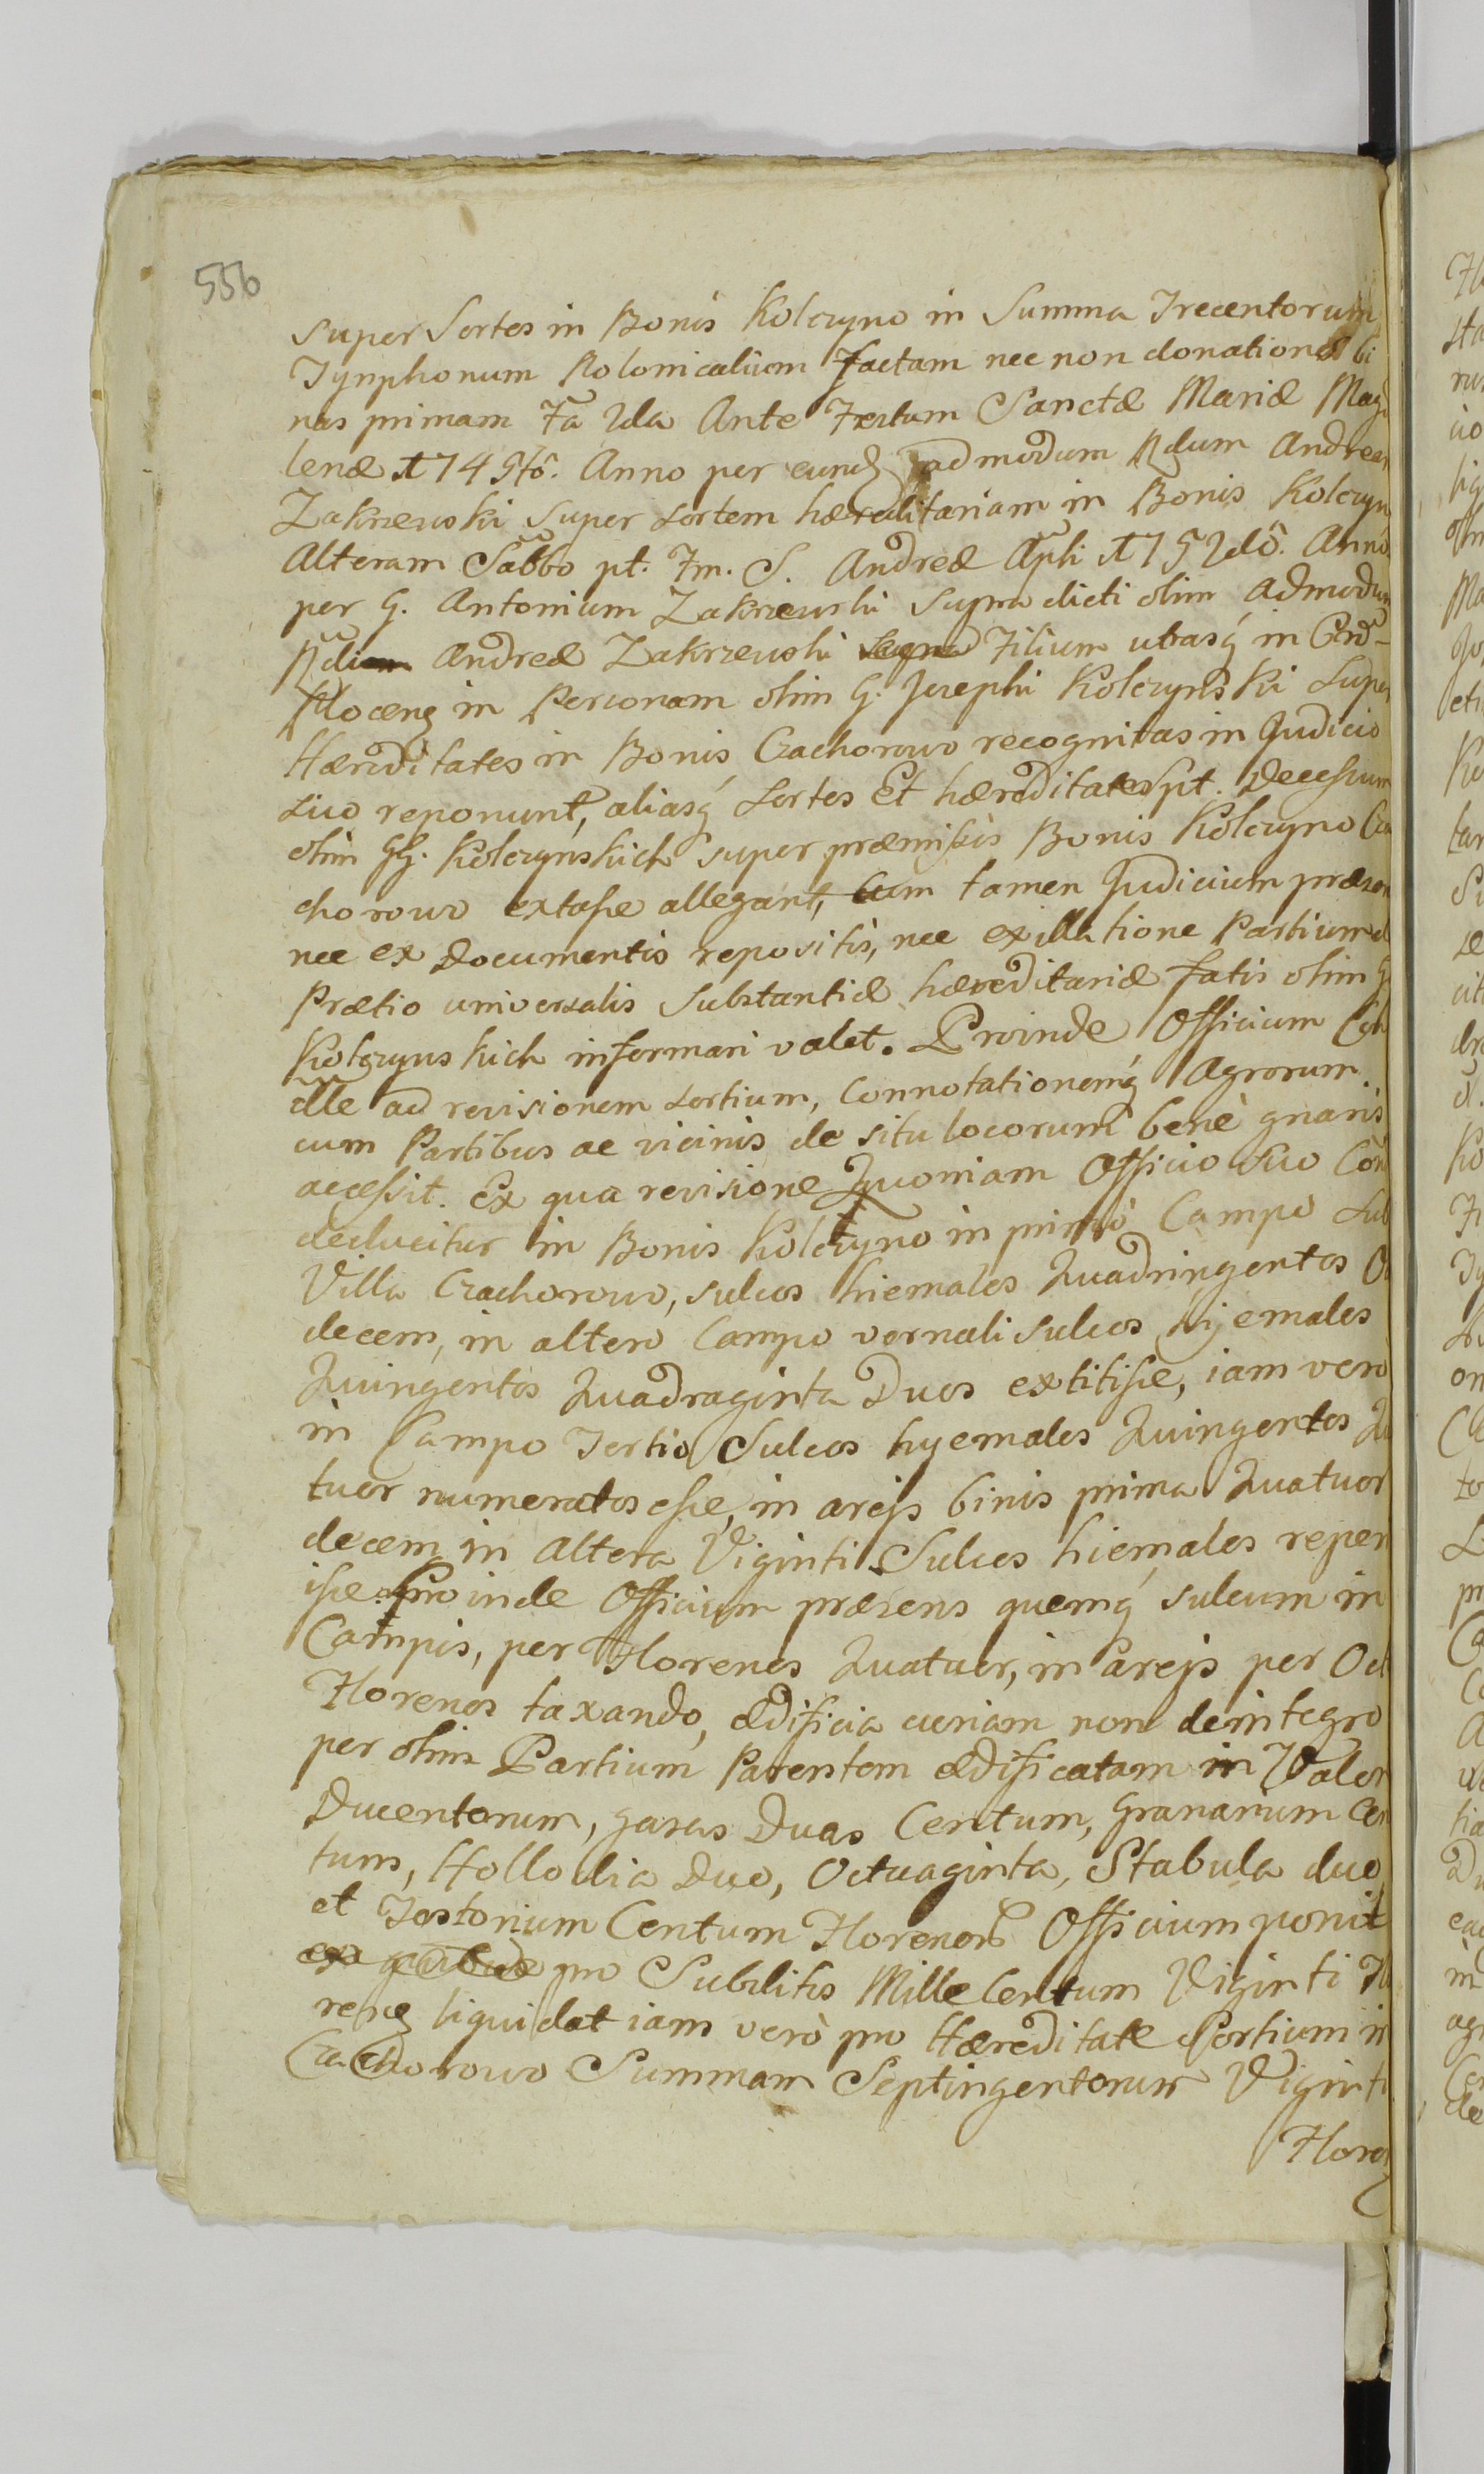 556
super Sortes in Bonis Kolczyno in Summa Trecentorum
Tynphonum Polonicalium factam nec non donationes bi
nas primam Fa 2da Ante Festum Sanctæ Mariæ Mag
lenæ 1745tô. Anno per eund admodum Rdum Andream
Zakrzewski super sortem hæreditariam in Bonis Kolczyn
Alteram Sabbo pt. Fm. S. Andreæ Apli 1752dô. Anno
per G. Antonium Zakrzewski supra dicti olim admodum
Rdi Andreæ Zakrzewski Filium utrasq in Cast-
Ploceng in Personam olim G. Josephi Kolczynski super
Hæreditates in Bonis Czachorowo recognitas in Judicio
suo reponunt, aliasq sortes Et hæreditates pt. Decessum
olim GG. Kolczynskich super præmissis Bonis Kolczyno Cza
chorowo extasse allegant, cum tamen Judicium præsen
nec ex Documentis repositis, nec ex illatione Partium d
Prætio universalis substantiæ hæreditariæ fatis olim G
Kolczynskich informari valet. Proinde Officium
ille ad revisionem sortium, Connotationemq Agrorum
cum Partibus ac vicinis de situ locorum benè gnaris
accessit. Ex qua revisione Quoniam Officio suo Con
deducitur in Bonis Kolczyno in primò Campo sub
Villa Czachorowo, sulcos hiemales Quadringentos O
decem, in altero Campo vernali sulcos hijemales
Quingentos Quadraginta Duos extitisse, iam vero
in Campo Tertio Sulcos hyemales Quingentos Qu
tuor numeratos esse, in arejs binis prima Quatuor
decem in altera Viginti Sulcos hiemales reper
isse. Proinde Officium præsens quemq sulcum in
Campis, per Florenos Quatuor, in arejs per Oct
Florenos taxando, ædificia curiam non deintegro
per olim Partium Parentem ædificatam in Valor
Ducentorum, garas Duas Centum, Granarium Cen
tum, Hollodia Duo, Octuaginta, Stabula duo
et Tostorium Centum Florenos Officium ponit
pro Subditis Mille Centum Viginti Fl
reng liquidat iam verò pro Hæreditate Sortium in
Czachorowo Summam Septingentorum Viginti
Floren